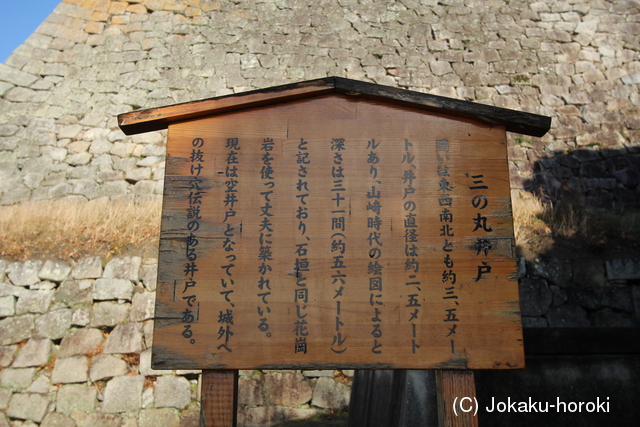 三の丸井戸
囲いは東西南北とも約三、五メー
トル、井戸の直径は約二、五メート
ルあり、山崎時代の絵図によると
深さは三十一間（約五六メートル）
と記されており、石垣と同じ花崗
岩を使って丈夫に築かれている。
現在は空井戸となっていて、城外へ
の抜け穴伝説のある井戸である。
(C) Jokaku-horoki